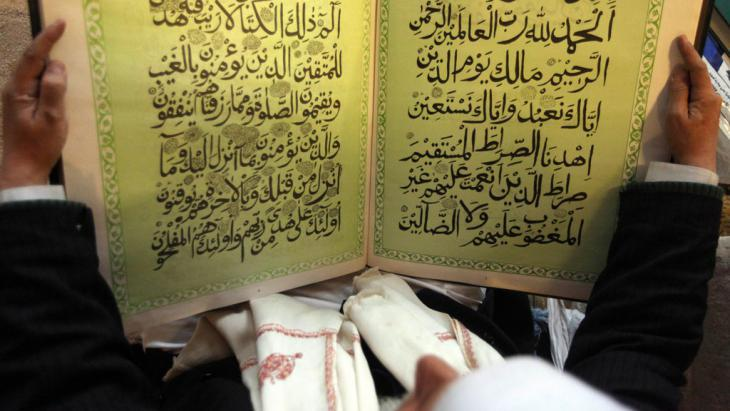 اَلْحَمْدُ لِلّٰهِ رَبِّ الْعَالَمِينَ الرَّحْمٰنِ
الرَّحِيمِ مَالِكِ يَوْمِ الدِّينِ
اِيَّاكَ نَعْبُدُ وَاِيَّاكَ نَسْتَعِينُ
اِهْدِنَا الصِّرَاطَ الْمُسْتَقِيمَ
صِرَاطَ الَّذِينَ اَنْعَمْتَ عَلَيْهِمْ غَيْرِ
الْمَغْضُوبِ عَلَيْهِمْ وَلَا الضَّالِّينَ
الٓمٓ ذٰلِكَ الْكِتَابُ لَا رَيْبَ فِيهِ هُدًى
لِلْمُتَّقِينَ الَّذِينَ يُؤْمِنُونَ بِالْغَيْبِ
وَيُقِيمُونَ الصَّلٰوةَ وَمِمَّا رَزَقْنَاهُمْ يُنْفِقُونَ
وَالَّذِينَ يُؤْمِنُونَ بِمَا اُنْزِلَ اِلَيْكَ وَمَا
اُنْزِلَ مِنْ قَبْلِكَ وَبِالْاٰخِرَةِ هُمْ يُوقِنُونَ
اُولٰئِكَ عَلٰى هُدًى مِنْ رَبِّهِمْ وَاُولٰئِكَ هُمُ الْمُفْلِحُونَ